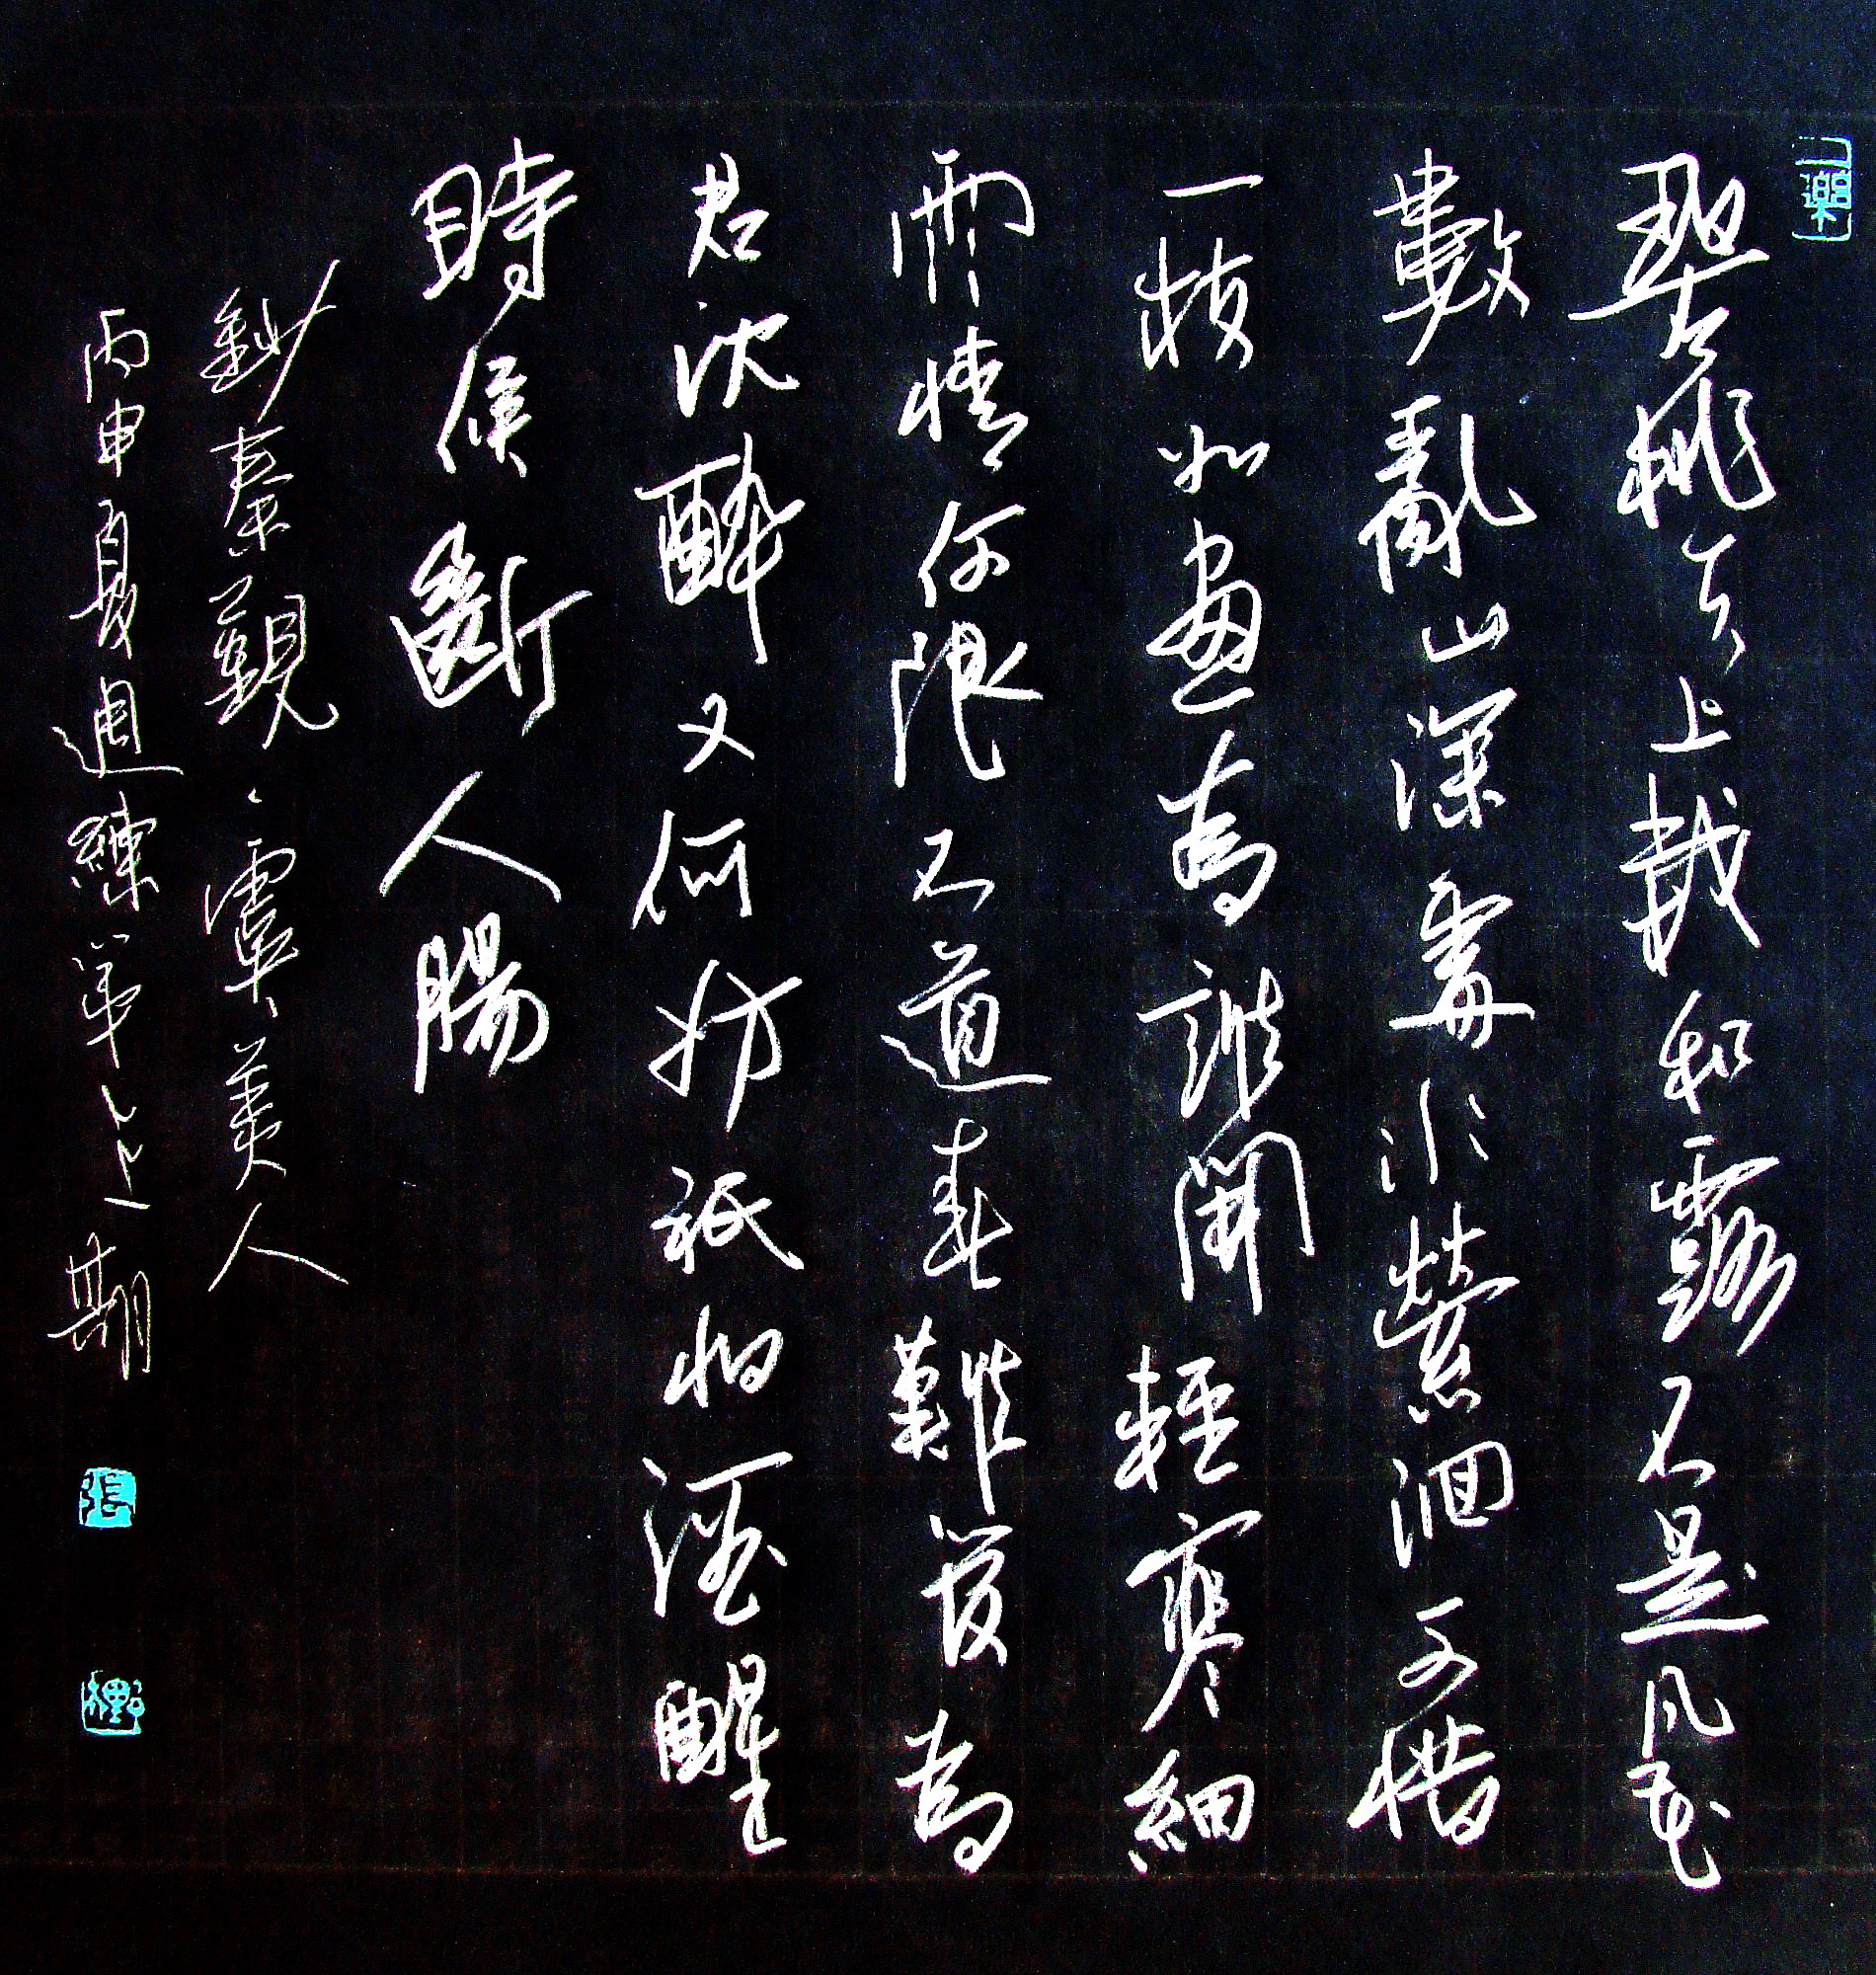 碧桃天上栽和露不是凡花
數亂山深處水縈洄可惜
一枝如畫為誰開輕寒細
雨情何限不道春難管為
君沈醉又何妨祇怕酒醒
時候斷人腸
鈔秦觀、虞美人
丙申夏週練第七上期
張